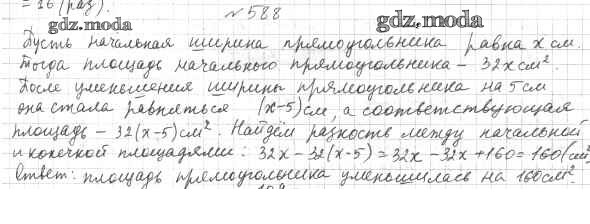 = 16 (раз).
№ 588
gdz.moda gdz.moda
Пусть начальная ширина прямоугольника равна x см.
Тогда площадь начального прямоугольника – 32x см².
После уменьшения ширины прямоугольника на 5 см
она стала равняться (x-5) см, а соответствующая
площадь – 32(x-5) см². Найдём разность между начальной
и конечной площадями: 32x - 32(x-5) = 32x - 32x + 160 = 160 (см²
Ответ: площадь прямоугольника уменьшилась на 160 см².